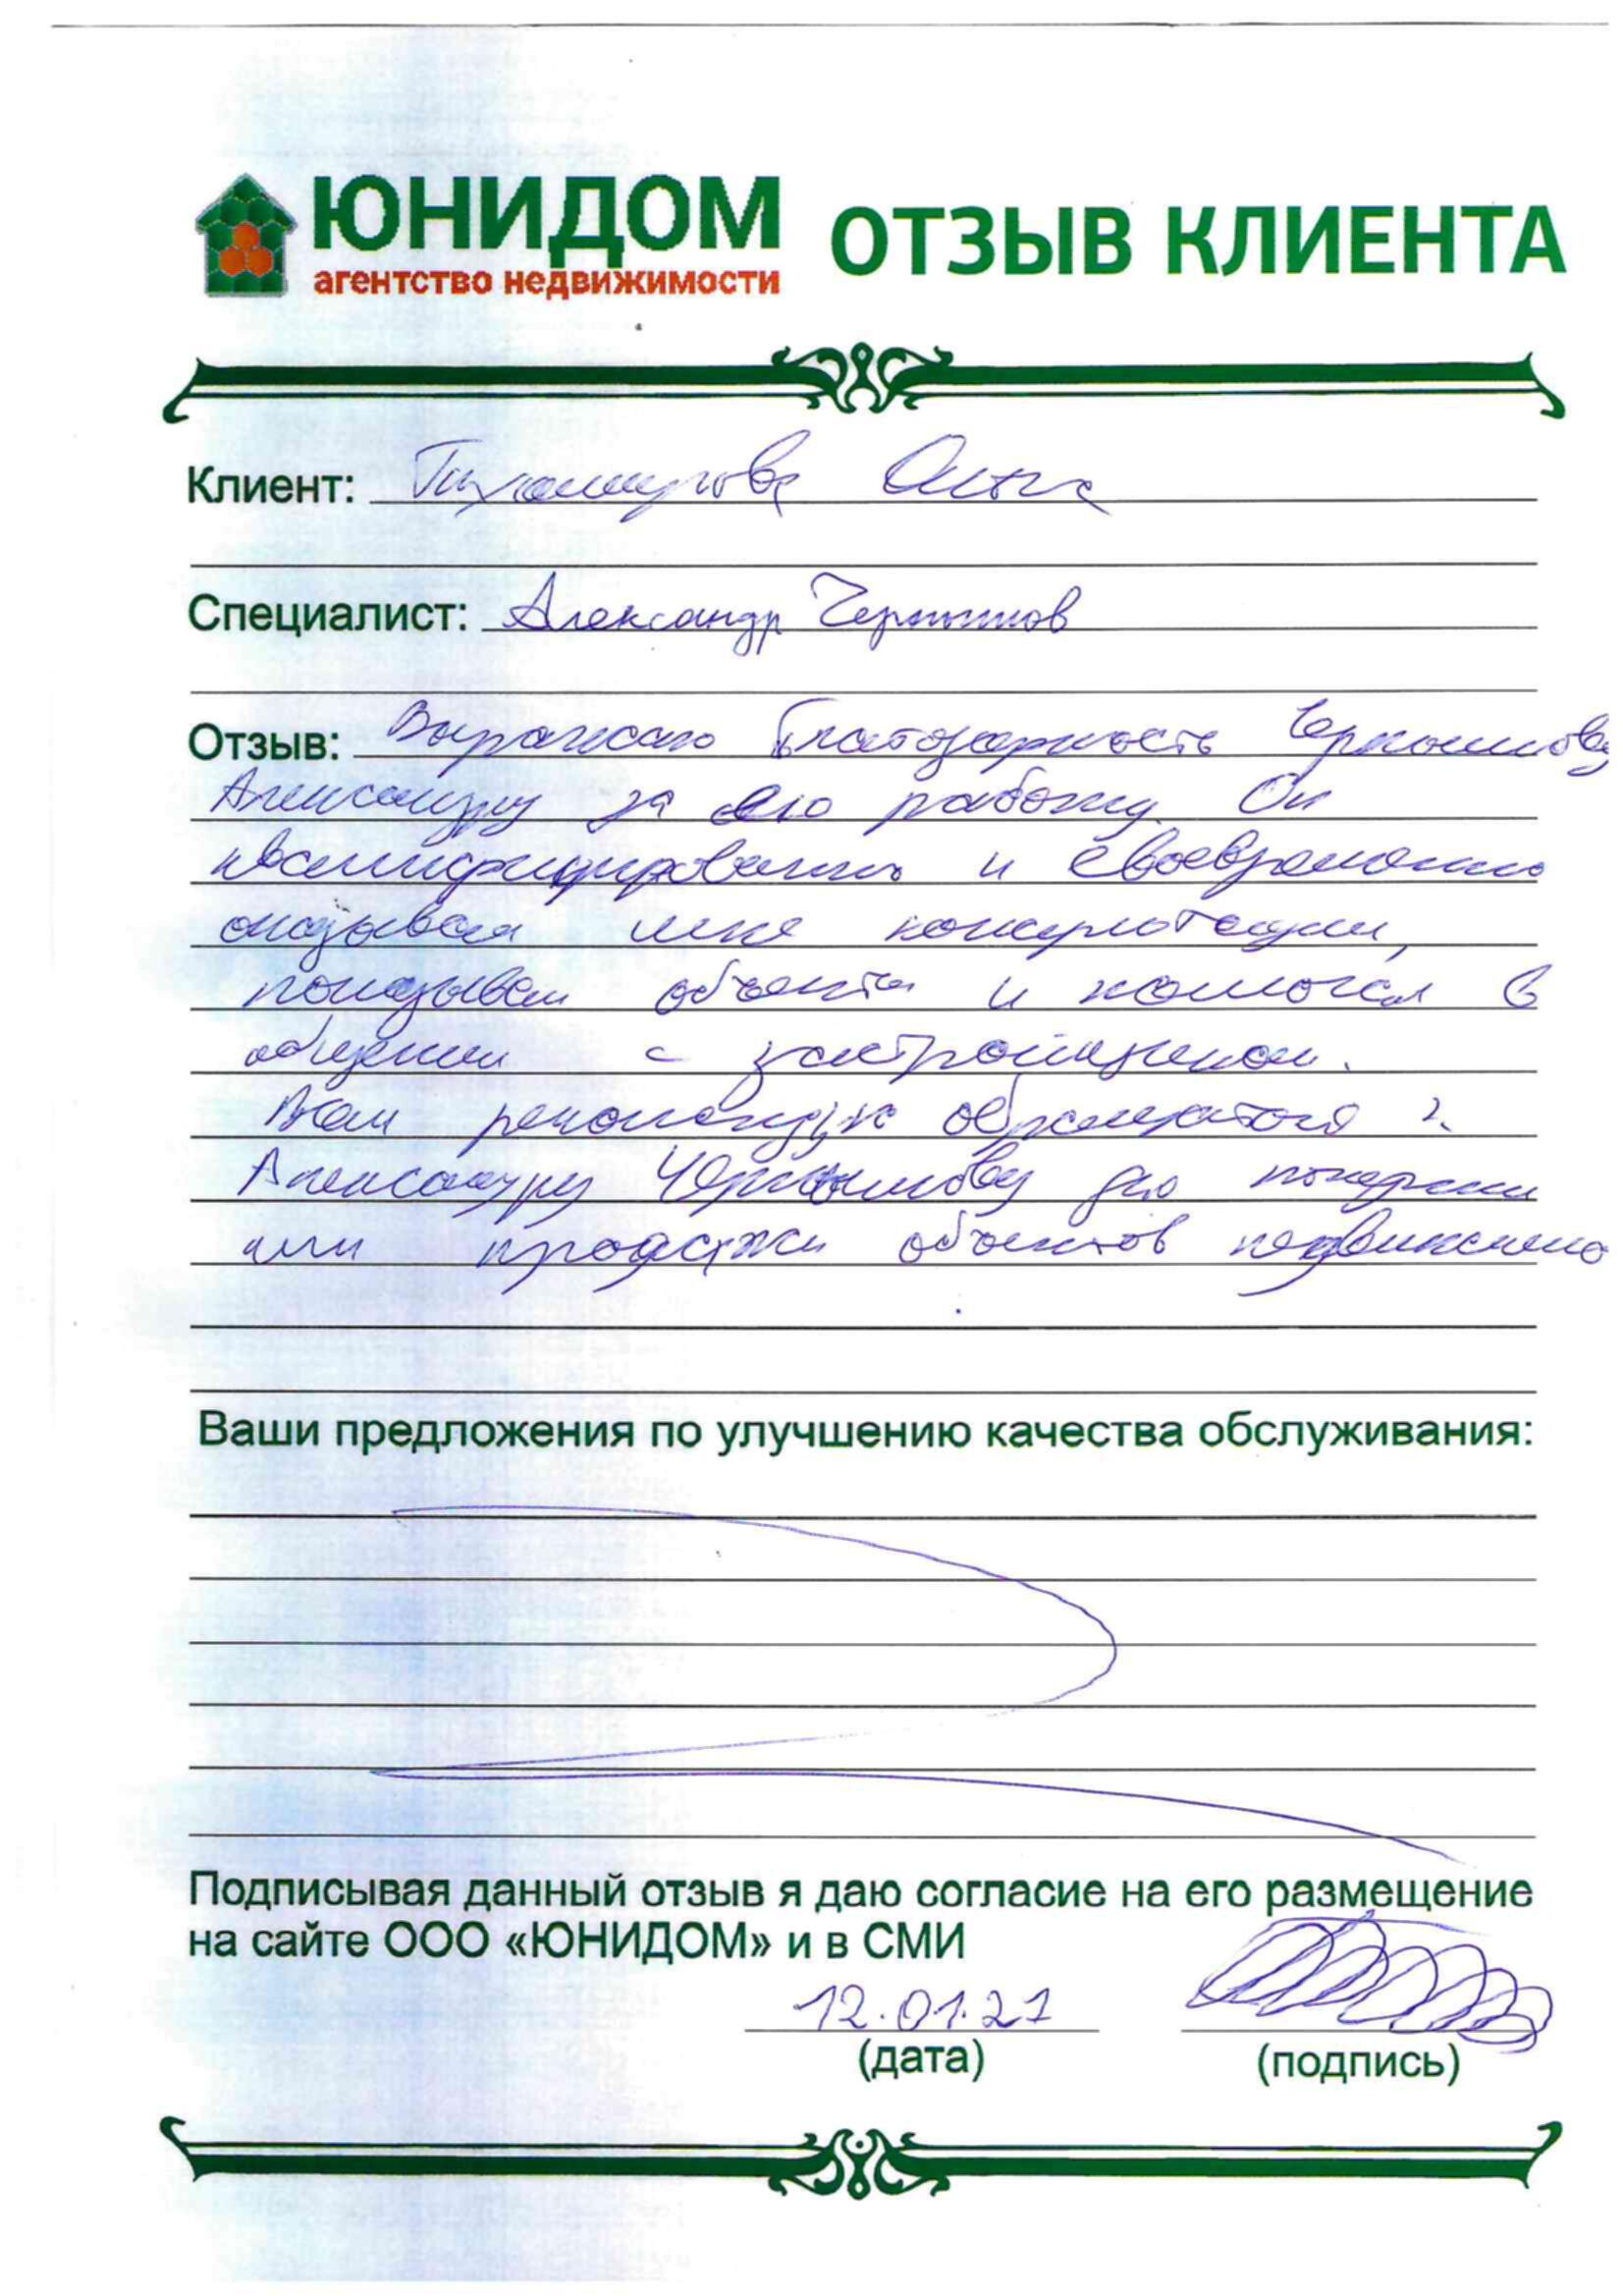 ЮНИДОМ
агентство недвижимости
ОТЗЫВ КЛИЕНТА
Клиент: Тихомирова Ольга
Специалист: Александр Чернышов
Отзыв: Выражаю благодарность Чернышову
Александру за его работу. Он
квалифицированно и своевременно
оказывал мне консультации,
показывал объекты и помогал в
общении с застройщиком.
Вам рекомендую обращаться к
Александру Чернышову для покупки
или продажи объектов
Ваши предложения по улучшению качества обслуживания:
Подписывая данный отзыв я даю согласие на его размещение
на сайте ООО «ЮНИДОМ» и в СМИ
12.01.21
(дата)
(подпись)